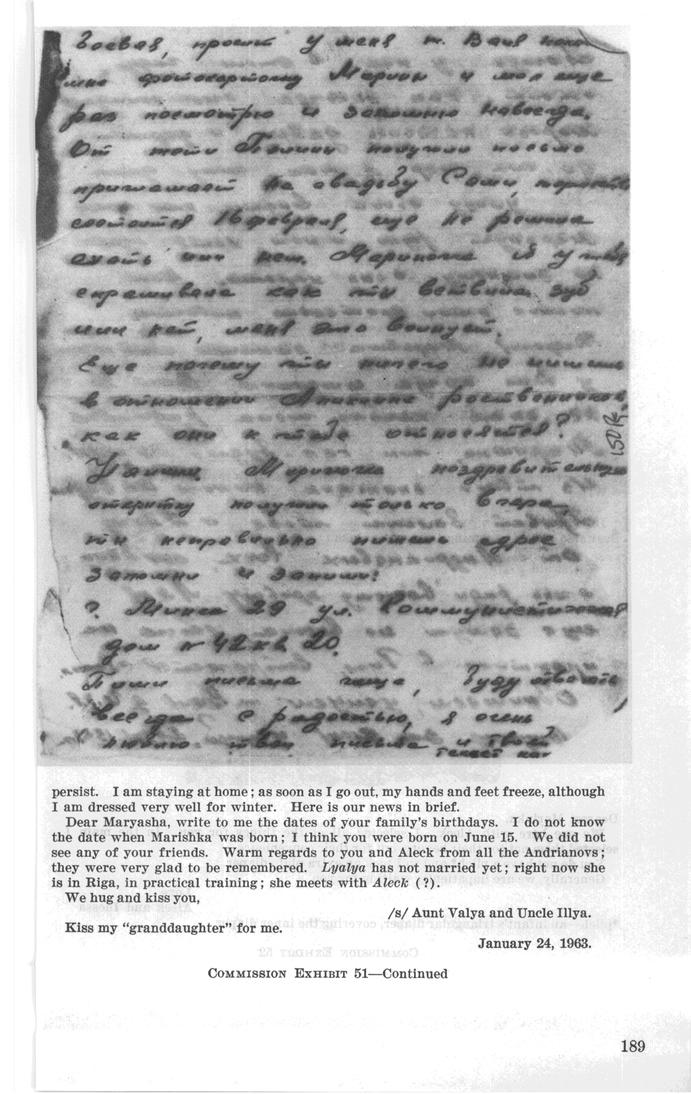 боевая, просит у меня т. Валя
фотокарточку Марион и мол еще
раз посмотрю и запомню навсегда.
От тети Полины получили письмо
приглашает на свадьбу Саши,
состоится 16 февраля, еще не решила
ехать или нет. Мариночка я у тебя
спрашивала как ты вставила зуб
или нет, меня это волнует.
Еще почему ты ничего не пишешь
в отношении родственников,
как они к тебе относятся?
150R
Мариночка поздравительную
открытку получили только вчера,
ты неправильно пишешь адрес
запомни и запиши!
г. Минск 29 ул. Коммунистическая
дом № 42 кв 20.
Пиши письма чаще, буду отвечать
всегда с радостью, я очень
люблю твои письма и твой
persist. I am staying at home; as soon as I go out, my hands and feet freeze, although
I am dressed very well for winter. Here is our news in brief.
Dear Maryasha, write to me the dates of your family's birthdays. I do not know
the date when Marishka was born; I think you were born on June 15. We did not
see any of your friends. Warm regards to you and Aleck from all the Andrianovs;
they were very glad to be remembered. Lyalya has not married yet; right now she
is in Riga, in practical training; she meets with Aleck (?).
We hug and kiss you,
/s/ Aunt Valya and Uncle Illya.
Kiss my "granddaughter" for me.
January 24, 1963.
COMMISSION EXHIBIT 51—Continued
189